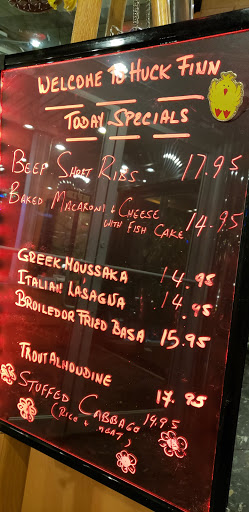 WELCOME TO HUCK FINN
TODAY SPECIALS
BEEF SHORT RIBS 17.95
BAKED MACARONI & CHEESE
WITH FISH CAKE 14.95
GREEK MOUSSAKA 14.95
ITALIAN LASAGNA 14.95
BROILED OR FRIED BASA 15.95
TROUT ALMONDINE 17.95
STUFFED CABBAGE 14.95
(RICE & MEAT)